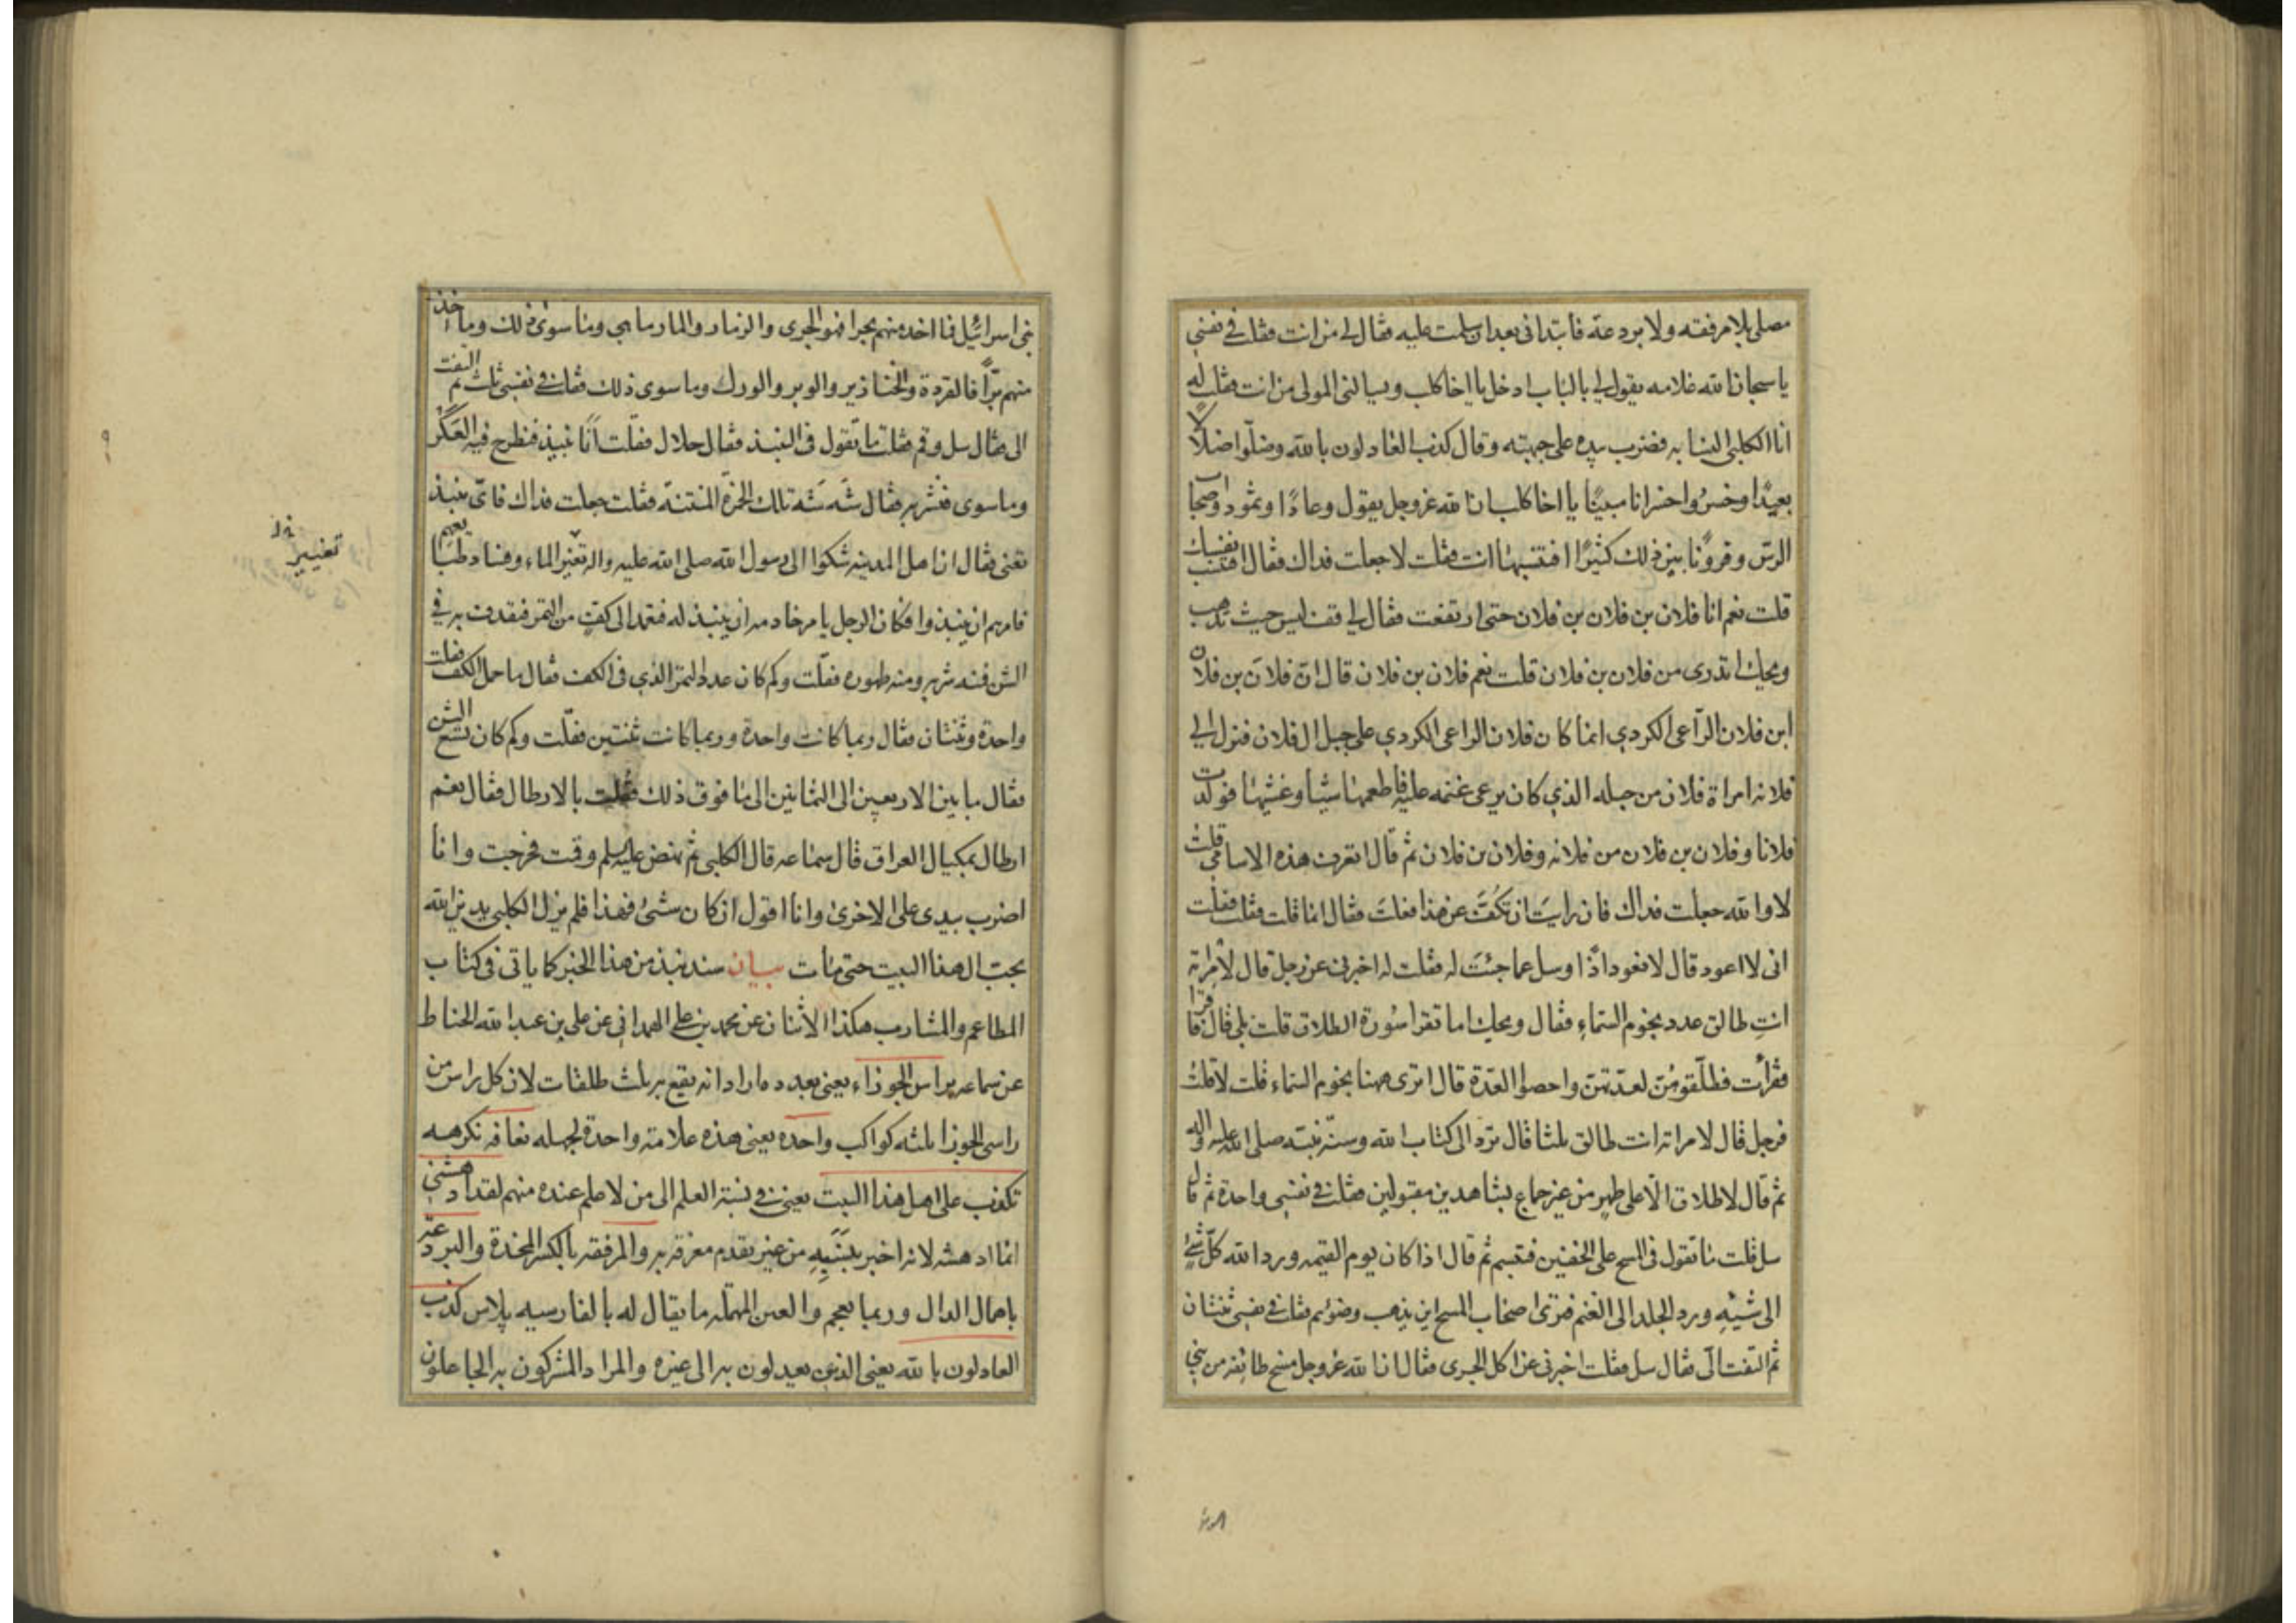 مصلى بلا مرفقة ولا بردعة فابتدانى بعد ان سلمت عليه فقال لى من انت فقلت في نفسى
يا سبحان الله غلامه يقول لى بالباب ادخل يا اخا كلب ويسالنى المولى من انت فقلت له
انا الكلبى النسابه فضرب بيده على جبهته وقال كذب العادلون بالله وضلّوا ضلالًا
بعيدًا وخسروا خسرانا مبينًا يا اخا كلب ان الله عز وجل يقول وعادًا وثمود واصحاب
الرسّ وقرونًا بين ذلك كثيرًا افتنسبها انت فقلت لا جعلت فداك فقال افتنسب نفسك
قلت نعم انا فلان بن فلان بن فلان حتى ارتفعت فقال لى قف ليس حيث تذهب
ويحك اتدرى من فلان بن فلان قلت نعم فلان بن فلان قال انّ فلان بن فلان
ابن فلان الرّاعى الكردي انما كان فلان الراعى الكردي على جبل ال فلان فنزل الى
فلانه امراة فلان من جبله الذي كان يرعى غنمه عليه فاطعمها شيئا وغشيها فولدت
فلانا وفلان بن فلان من فلانه وفلان بن فلان ثم قال اتعرف هذه الاسامى قلت
لا والله جعلت فداك فان رايت ان تكُفّ عن هذا فعلتَ فقال انما قلت فقلت فقلت
انى لا اعود قال لا نعود اذًا وسل عما جئتَ له فقلت له اخبرنى عن رجل قال لامراته
انتِ طالق عدد نجوم السّماءِ فقال ويحك اما تقرا سُورة الطلاق قلت بلى قال فاقرا
فقرأت فطلّقوهُنّ لعدّتهنّ واحصوا العدّة قال اترى ههنا نجوم السّماء قلت لا قلتُ
فرجل قال لامراته انت طالق ثلثا قال تردّ الى كتاب الله وسنّة نبيّه صلى الله عليه واله
ثم قال لا طلاق الّا على طهرٍ من غير جماع بشاهدين مقبولين فقلت في نفسى واحدة ثم قال
سل قلت ما تقول فى المسح على الخفين فتبسم ثم قال اذا كان يوم القيمه ورد الله كلّ شئٍ
الى شيئهِ ورد الجلد الى الغنم فترى اصحاب المسح اين يذهب وضوئهم فقلت في نفسى ثنتان
ثم التفت الىّ فقال سل فقلت اخبرنى عن اكل الجرى فقال ان الله عز وجل مسخ طائفه من بنى
بنى اسرائيل فما اخذ منهم بحرا فهو الجرى والزمار والمارماهى وما سوى ذلك وما اخذ
منهم برًّا فالقردة والخنازير والوبر والورك وما سوى ذلك فقلت في نفسى ثلث ثم التفت
الى فقال سل وقم فقلت ما تقول فى النبيذ فقال حلال فقلت انّا ننبذ فنطرح فيه العَكَر
وما سوى فنشربه فقال شَه شَه تلك الخمرة المنتنة فقلت جعلت فداك فاىّ نبيذ
تعنى فقال ان اهل المدينه شكوا الى رسول الله صلى الله عليه واله تغيّر الماء وفساد طبايعهم
تغيير
فامرهم ان ينبذوا فكان الرجل يامر خادمه ان ينبذ له فيعمد الى كفّ من التمر فيقذف به فى
الشن فمنه شربه ومنه طهوره فقلت وكم كان عدد التمر الذي فى الكف فقال ما حمل الكف فقلت
واحدة وثنتان فقال ربما كانت واحدة وربما كانت ثنتين فقلت وكم كان يسع الشن
فقال ما بين الاربعين الى الثمانين الى ما فوق ذلك فقلت بالارطال فقال نعم
ارطال بمكيال العراق قال سماعه قال الكلبى ثم نهض عليه السلم وقمت فخرجت وانا
اضرب بيدى على الاخرى وانا اقول ان كان شئ فهذا فلم يزل الكلبى يدين الله
بحب ال هذا البيت حتى مات بيان سند نبذ من هذا الخبر كما ياتى فى كتاب
المطاعم والمشارب هكذا الاثنان عن محمد بن على الهمدانى عن على بن عبد الله الحناط
عن سماعه براس الجوزاء يعنى بعدده اراد انه يقع به ثلث طلقات لان كل راس من
راسى الجوزا ثلثه كواكب واحده يعنى هذه علامة واحدة لجهله نعافه نكرهه
تكذب على اهل هذا البيت يعنى في نسبة العلم الى من لا علم عنده منهم لقد ادهشنى
انما ادهشه لانه اخبر بنسبه من غير تقدم معرفة به والمرفقه بالكسر المخدة والبردعة
باهمال الدال وربما يعجم والعين المهملة ما يقال له بالفارسيه پلاس كذب
العادلون بالله يعنى الذين يعدلون به الى غيره والمراد المشركون به الجاعلون